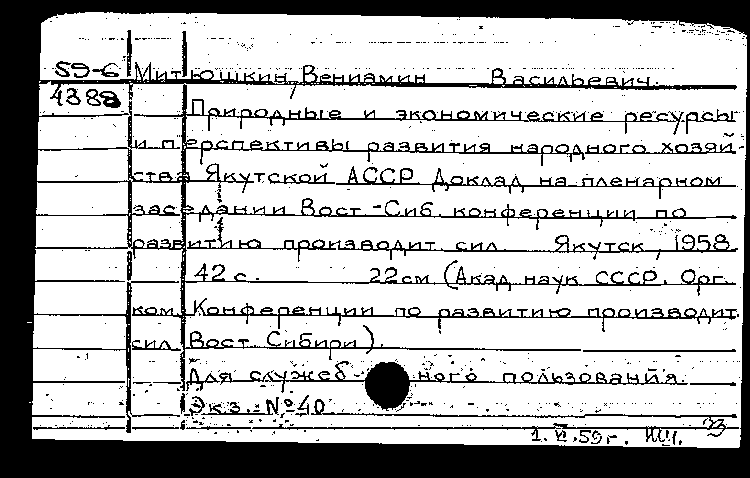 59-6 Митюшкин, Вениамин Васильевич.
4388
Природные и экономические ресурсы
и перспективы развития народного хозяй-
ства Якутской АССР. Доклад на пленарном
заседании Вост.-Сиб. конференции по
развитию производит. сил. Якутск, 1958
42 с. 22 см. (Акад. наук СССР. Орг.
ком. Конференции по развитию производит.
сил Вост. Сибири).
Для служебного пользования.
Экз. № 40
1.VI.59г.